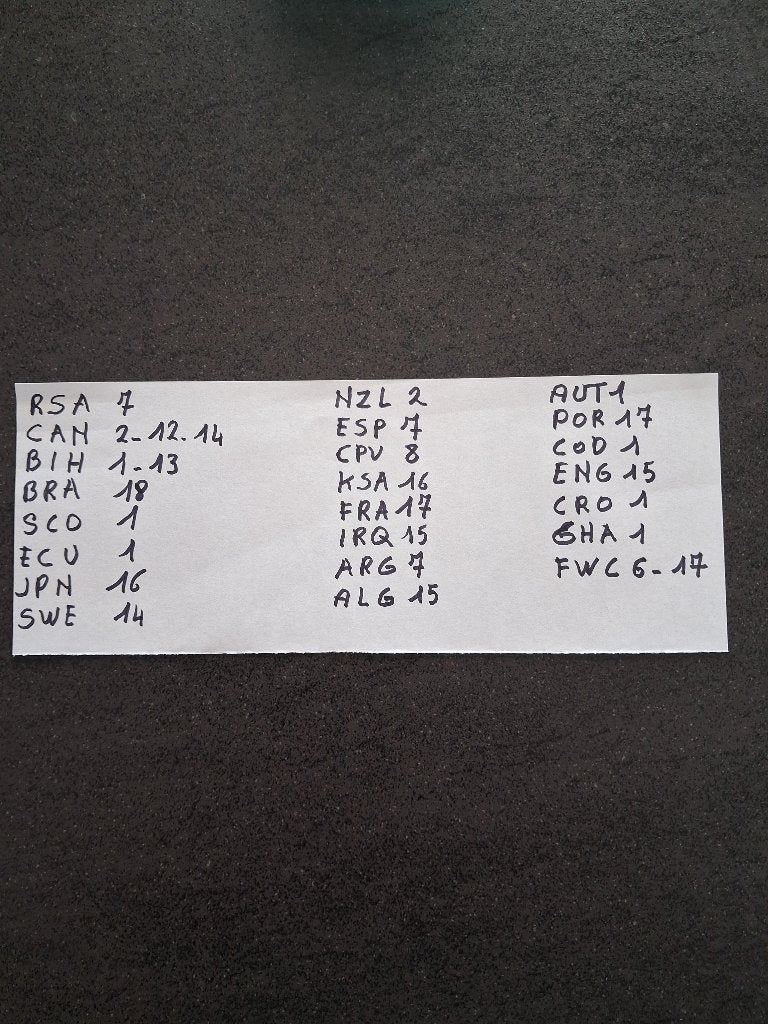 RSA 7
CAN 2-12.14
BIH 1-13
BRA 18
SCO 1
ECU 1
JPN 16
SWE 14
NZL 2
ESP 7
CPV 8
KSA 16
FRA 17
IRQ 15
ARG 7
ALG 15
AUT 1
POR 17
COD 1
ENG 15
CRO 1
GHA 1
FWC 6-17